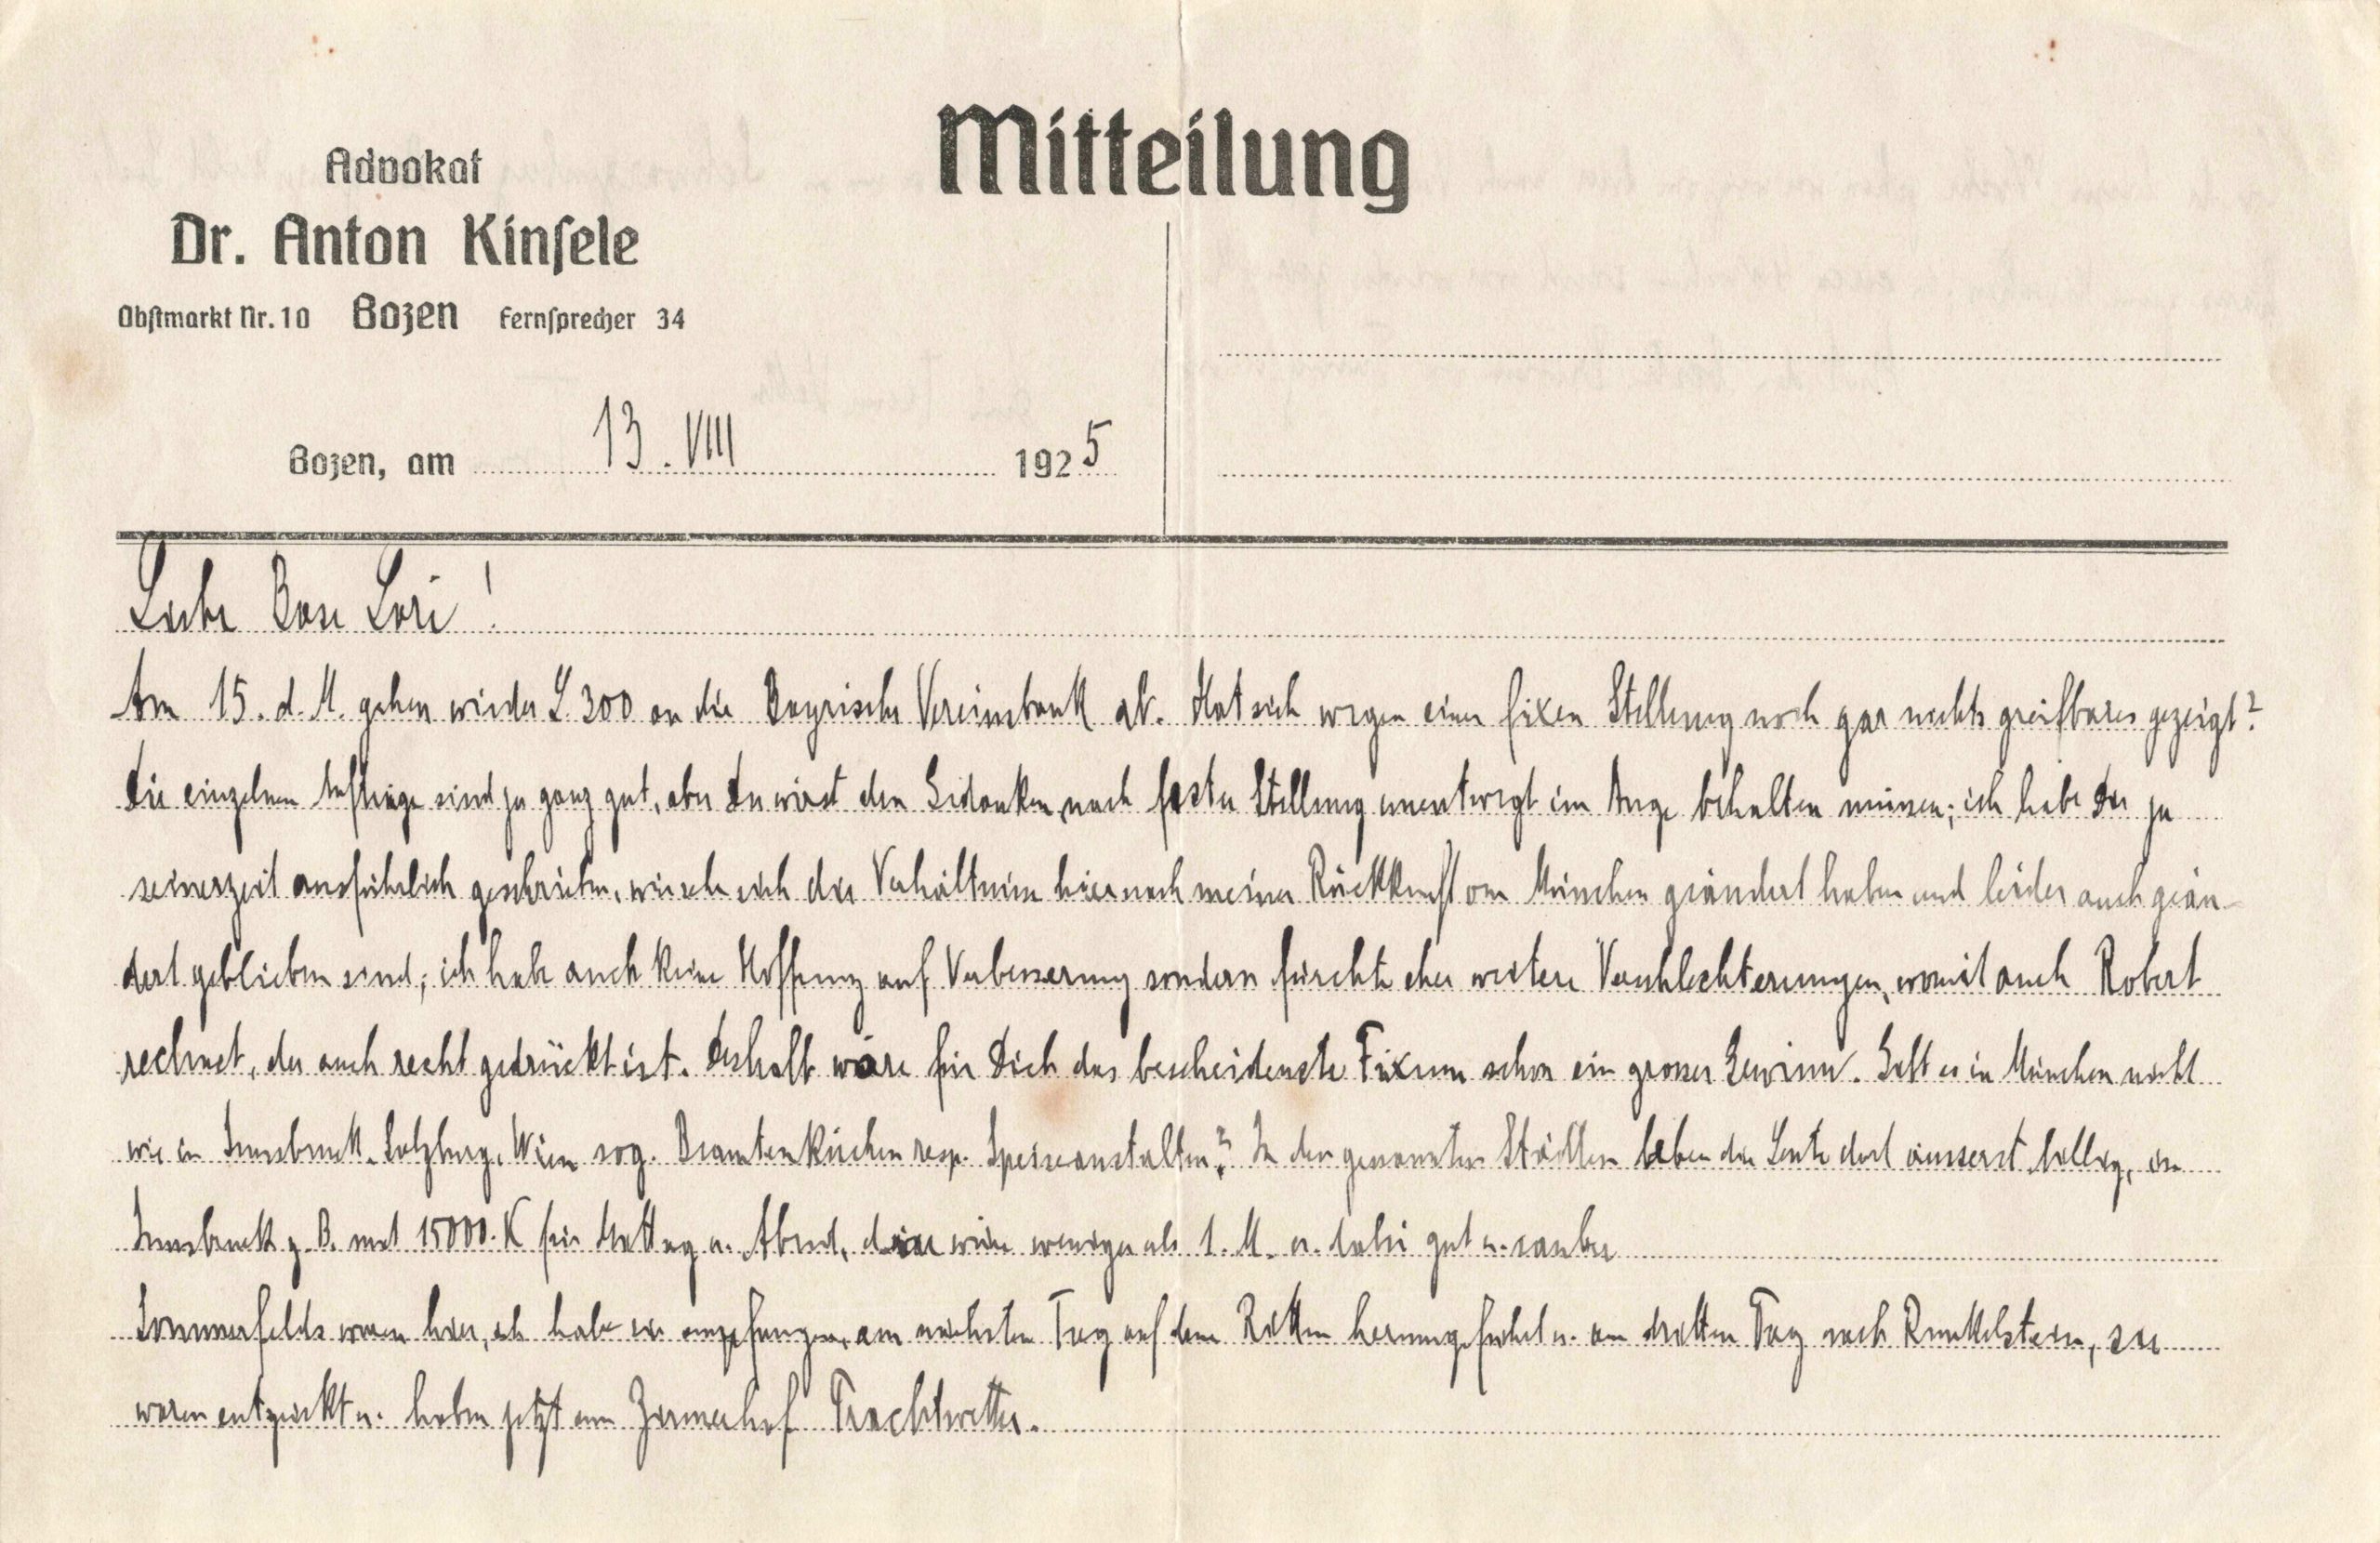 Mitteilung
Advokat
Dr. Anton Kinsele
Obstmarkt Nr. 10 Bozen Fernsprecher 34
Bozen, am 13. VIII 1925
Liebe Base Lori!
Am 15. d. M. gehen wieder L. 300 an die Bayrische Vereinsbank ab. Hat sich wegen einer fixen Stellung noch gar nichts greifbares gezeigt?
Die einzelnen Aufträge sind ja ganz gut, aber Du wirst den Gedanken nach fester Stellung unentwegt im Auge behalten müssen; ich habe Dir ja
seinerzeit ausführlich geschrieben, wie sehr sich die Verhältnisse hier nach meiner Rückkunft von München geändert haben und leider auch geän-
dert geblieben sind; ich habe auch keine Hoffnung auf Verbesserung sondern fürchte eher weitere Verschlechterungen, womit auch Robert
rechnet, der auch recht gedrückt ist. Deshalb wäre für Dich das bescheidenste Fixum schon ein grosser Gewinn. Gibt es in München nicht
wie in Innsbruck, Salzburg, Wien sog. Beamtenküchen resp. Speiseanstalten? In den genannten Städten leben die Leute dort äusserst billig, in
Innsbruck z. B. mit 15000.K für Mittag u. Abend, das wäre weniger als 1. M. u. dabei gut u. sauber
Sommerfelds waren hier, ich habe sie empfangen, am nächsten Tag auf dem Ritten herumgeführt u. am dritten Tag nach Runkelstein, sie
waren entzückt u. haben jetzt am Zirmerhof Prachtwetter.